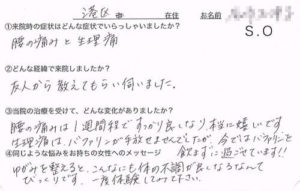 港区 在住 お名前
S.O
①来院時の症状はどんな症状でいらっしゃいましたか？
腰の痛みと生理痛
②どんな経緯で来院しましたか？
友人から教えてもらい伺いました。
③当院の治療を受けて、どんな変化がありましたか？
腰の痛みは1週間程ですっかり良くなり、本当に嬉しいです
生理痛は、バファリンが手放せませんでしたが、今ではバファリンを
④同じような悩みをお持ちの女性へのメッセージ 飲まずに過ごせています!!
ゆがみを整えると、こんなにも体の不調が良くなるなんて
びっくりです。一度体験してみて下さい。